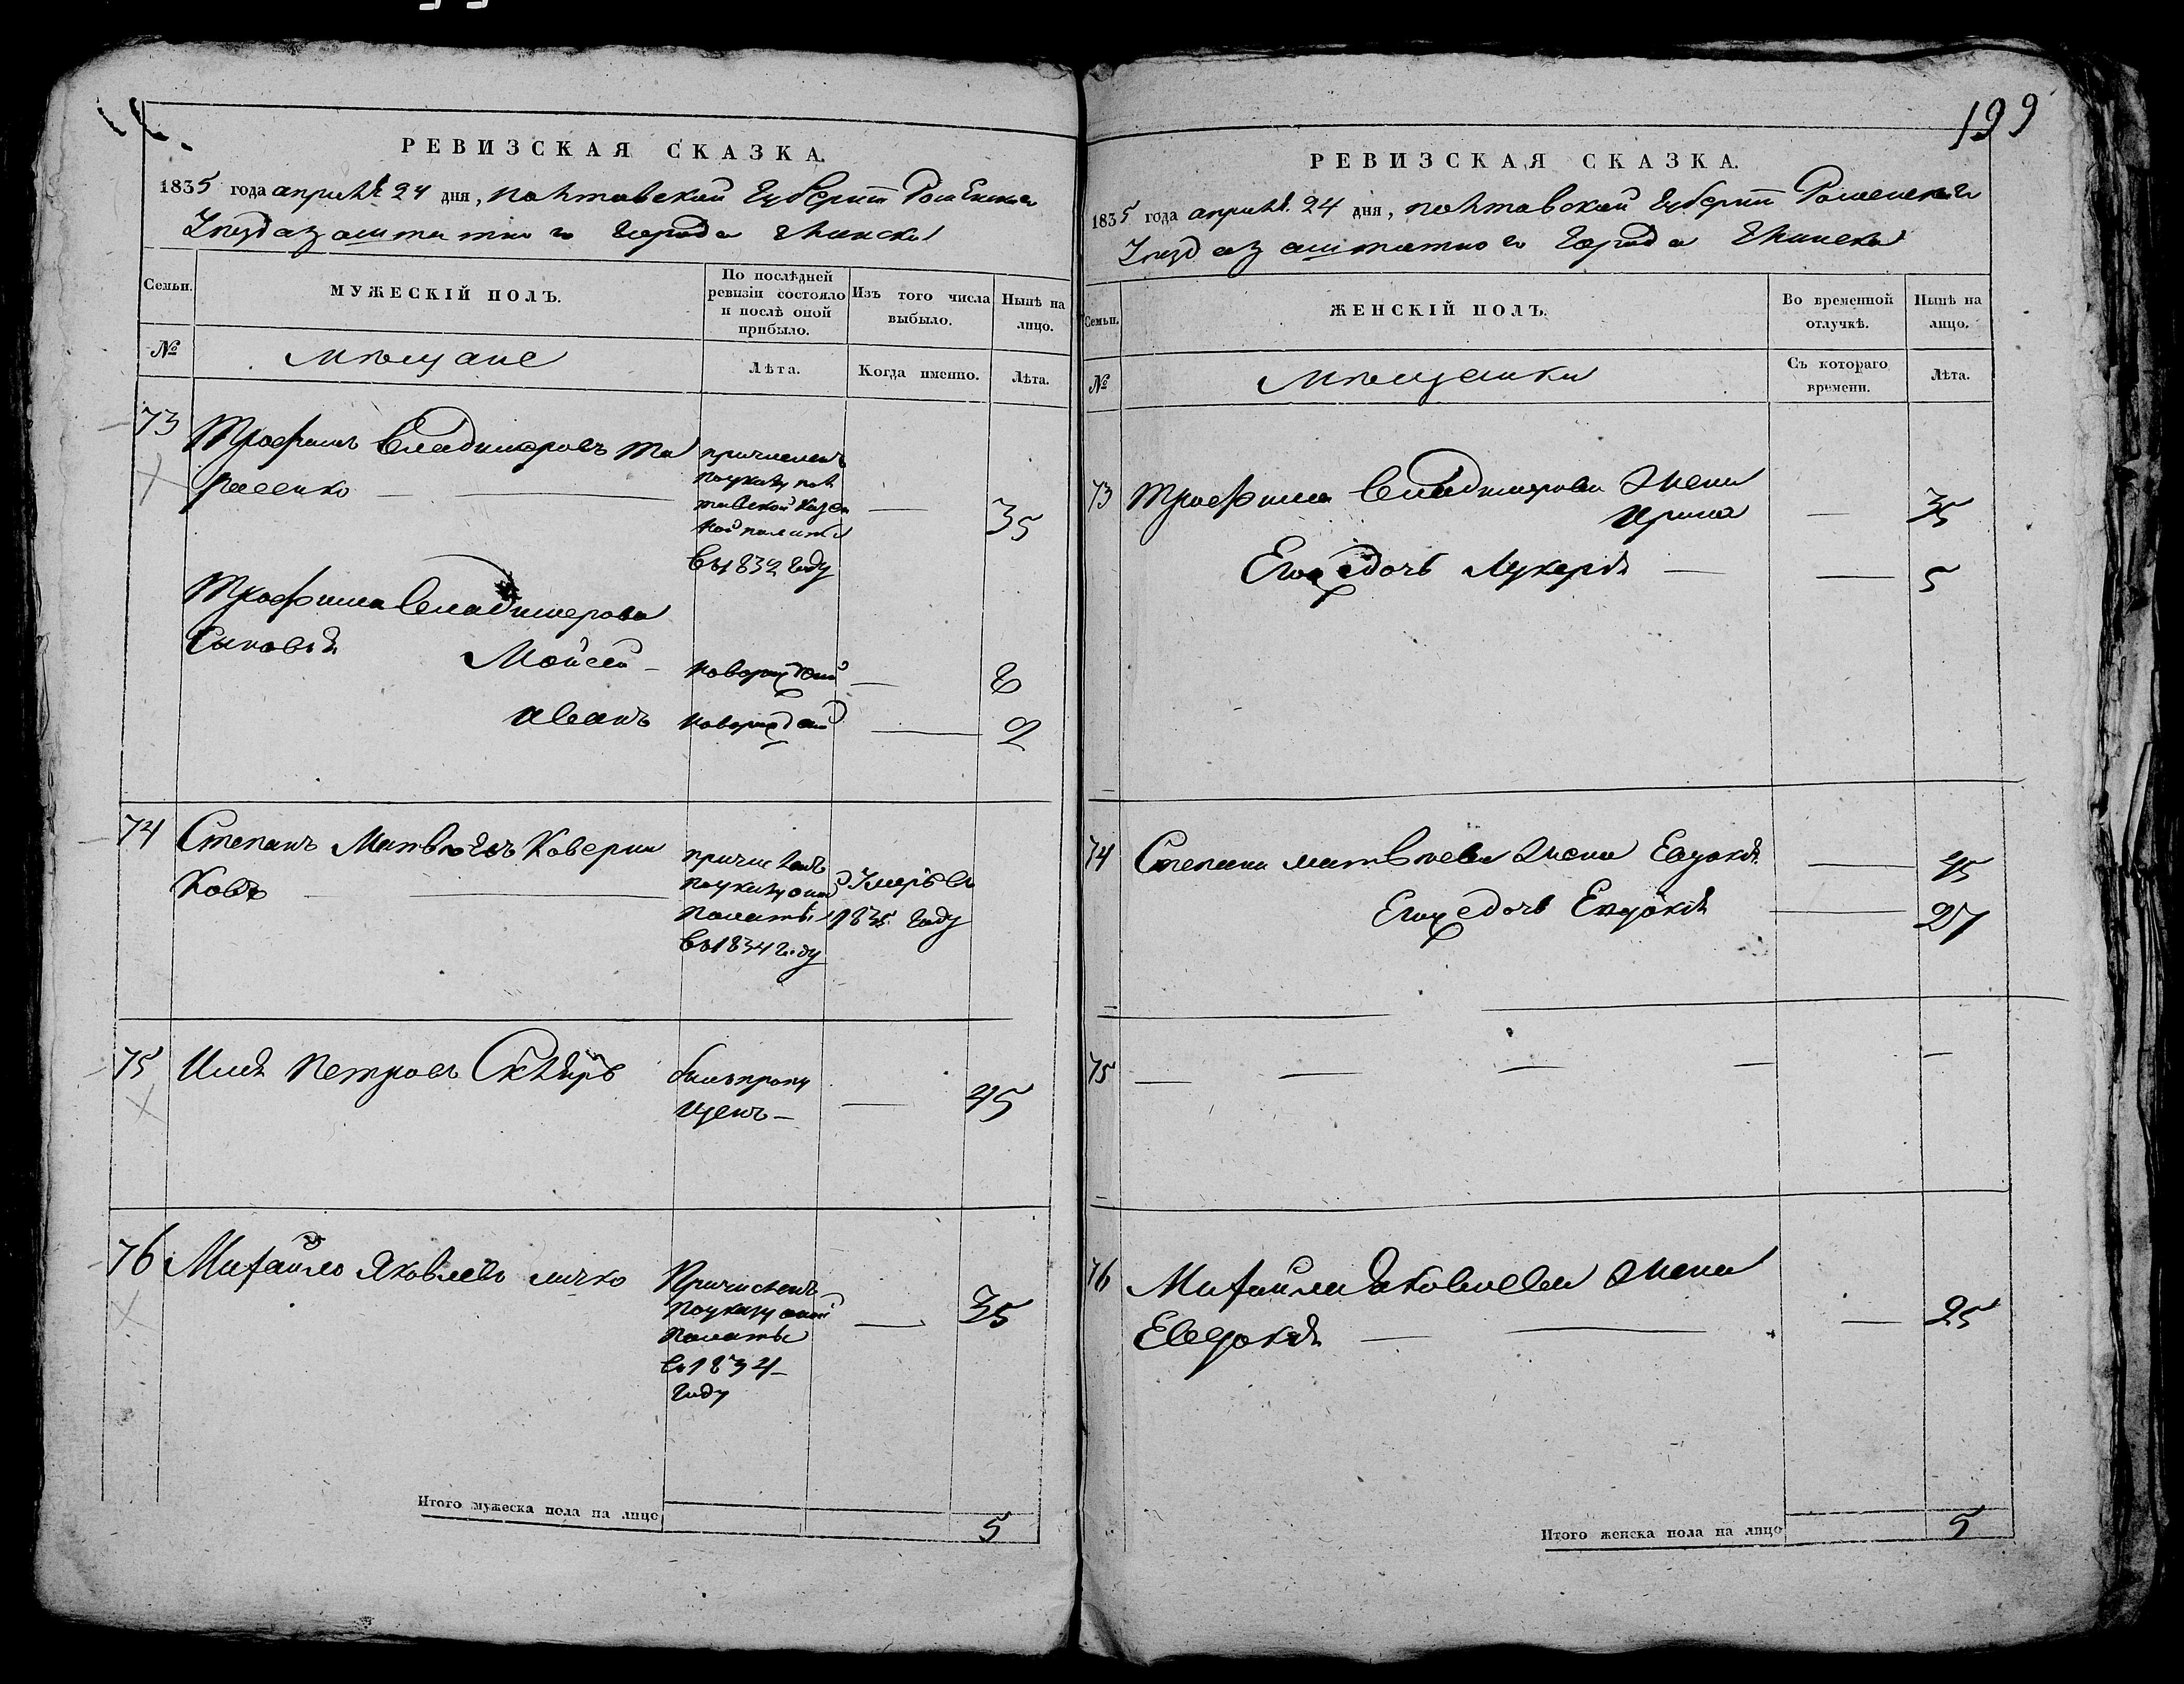 199
РЕВИЗСКАЯ СКАЗКА.
1835 года апреля 24 дня, полтавской губернии Роменского
Уезда заштатного города Глинска
Семьи.
МУЖЕСКІЙ ПОЛЪ.
По послѣдней
ревизіи состояло
и послѣ оной
прибыло.
Изъ того числа
выбыло.
Нынѣ на
лицо.
№
мѣщане
Лѣта.
Когда именно.
Лѣта.
73
Трофимъ Владимеровъ Та
расенко
причисленъ
поуказу пол
тавской Казен
ной палаты
въ 1832 году
35
Трофима Владимерова
Сыновья
Мойсей
новорожденной
6
иванъ
новорожденной
2
74
Степанъ Матвѣевъ Каверни
ковъ
причисленъ
поуказу оной
Палаты
въ 1834 году
Умеръ въ
1835 году
75
Илья Петровъ Скляръ
былъ пропу
щенъ
45
76
Михайло Яковлевъ личко
Причисленъ
поуказу оной
Палаты
въ 1834
году
35
Итого мужеска пола на лицо
5
РЕВИЗСКАЯ СКАЗКА.
1835 года апреля 24 дня, полтавской губернии Роменского
Уезда заштатного города Глинска
Семьи.
ЖЕНСКІЙ ПОЛЪ.
Во временной
отлучкѣ.
Нынѣ на
лицо.
№
мѣщанки
Съ котораго
времени.
Лѣта.
73
Трофима Владимерова жена
Ирина
35
Его ж дочь Лукерья
5
74
Степана матвѣева жена Евдокия
45
Его ж дочь Евдокия
27
75
76
Михайла Яковлева жена
Евдокия
25
Итого женска пола на лицо
5